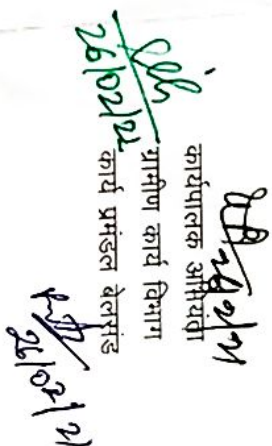 26/02/21
26/2/21
कार्यपालक अभियंता
ग्रामीण कार्य विभाग
कार्य प्रमंडल बेलसंड
26/02/21